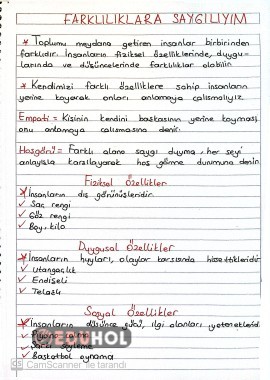 FARKLILIKLARA SAYGILIYIM
* Toplumu meydana getiren insanlar birbirinden
farklıdır. İnsanların fiziksel özelliklerinde, duygu-
larında ve düşüncelerinde farklılıklar olabilir.
* Kendimizi farklı özelliklere sahip insanların
yerine koyarak onları anlamaya çalışmalıyız.
Empati = Kişinin kendini başkasının yerine koyması,
onu anlamaya çalışmasına denir.
Hoşgörü = Farklı olana saygı duyma, her şeyi
anlayışla karşılayarak hoş görme durumuna denir.
Fiziksel Özellikler
* İnsanların dış görünüşleridir.
✓ Saç rengi
✓ Göz rengi
✓ Boy, kilo
Duygusal Özellikler
* İnsanların huyları, olaylar karşısında hissettikleridir.
✓ Utangaçlık
✓ Endişeli
✓ Telaşlı
Sosyal Özellikler
* İnsanların düşünce gücü, ilgi alanları, yetenekleridir.
✓ Şarkı söyleme
✓ Basketbol oynama
CamScanner ile tarandı